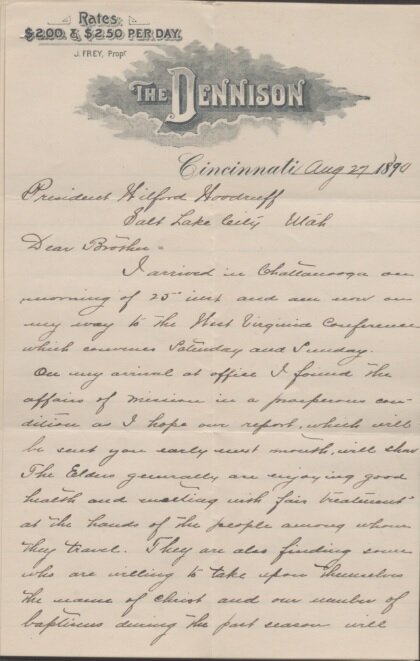 Rates
$2.00 & $2.50 PER DAY.
J. FREY, Propr
THE DENNISON
Cincinnati Aug 27 1890
President Wilford Woodruff
Salt Lake City Utah
Dear Brother:
I arrived in Chattanooga on
morning of 25" inst and am now on
my way to the West Virginia Conference
which convenes Saturday and Sunday.
On my arrival at office I found the
affairs of mission in a prosperous con-
dition as I hope our report, which will
be sent you early next month, will show
The Elders generally are enjoying good
health and meeting with fair treatment
at the hands of the people among whom
they travel. They are also finding some
who are willing to take upon themselves
the name of Christ and our number of
baptisms during the past season will